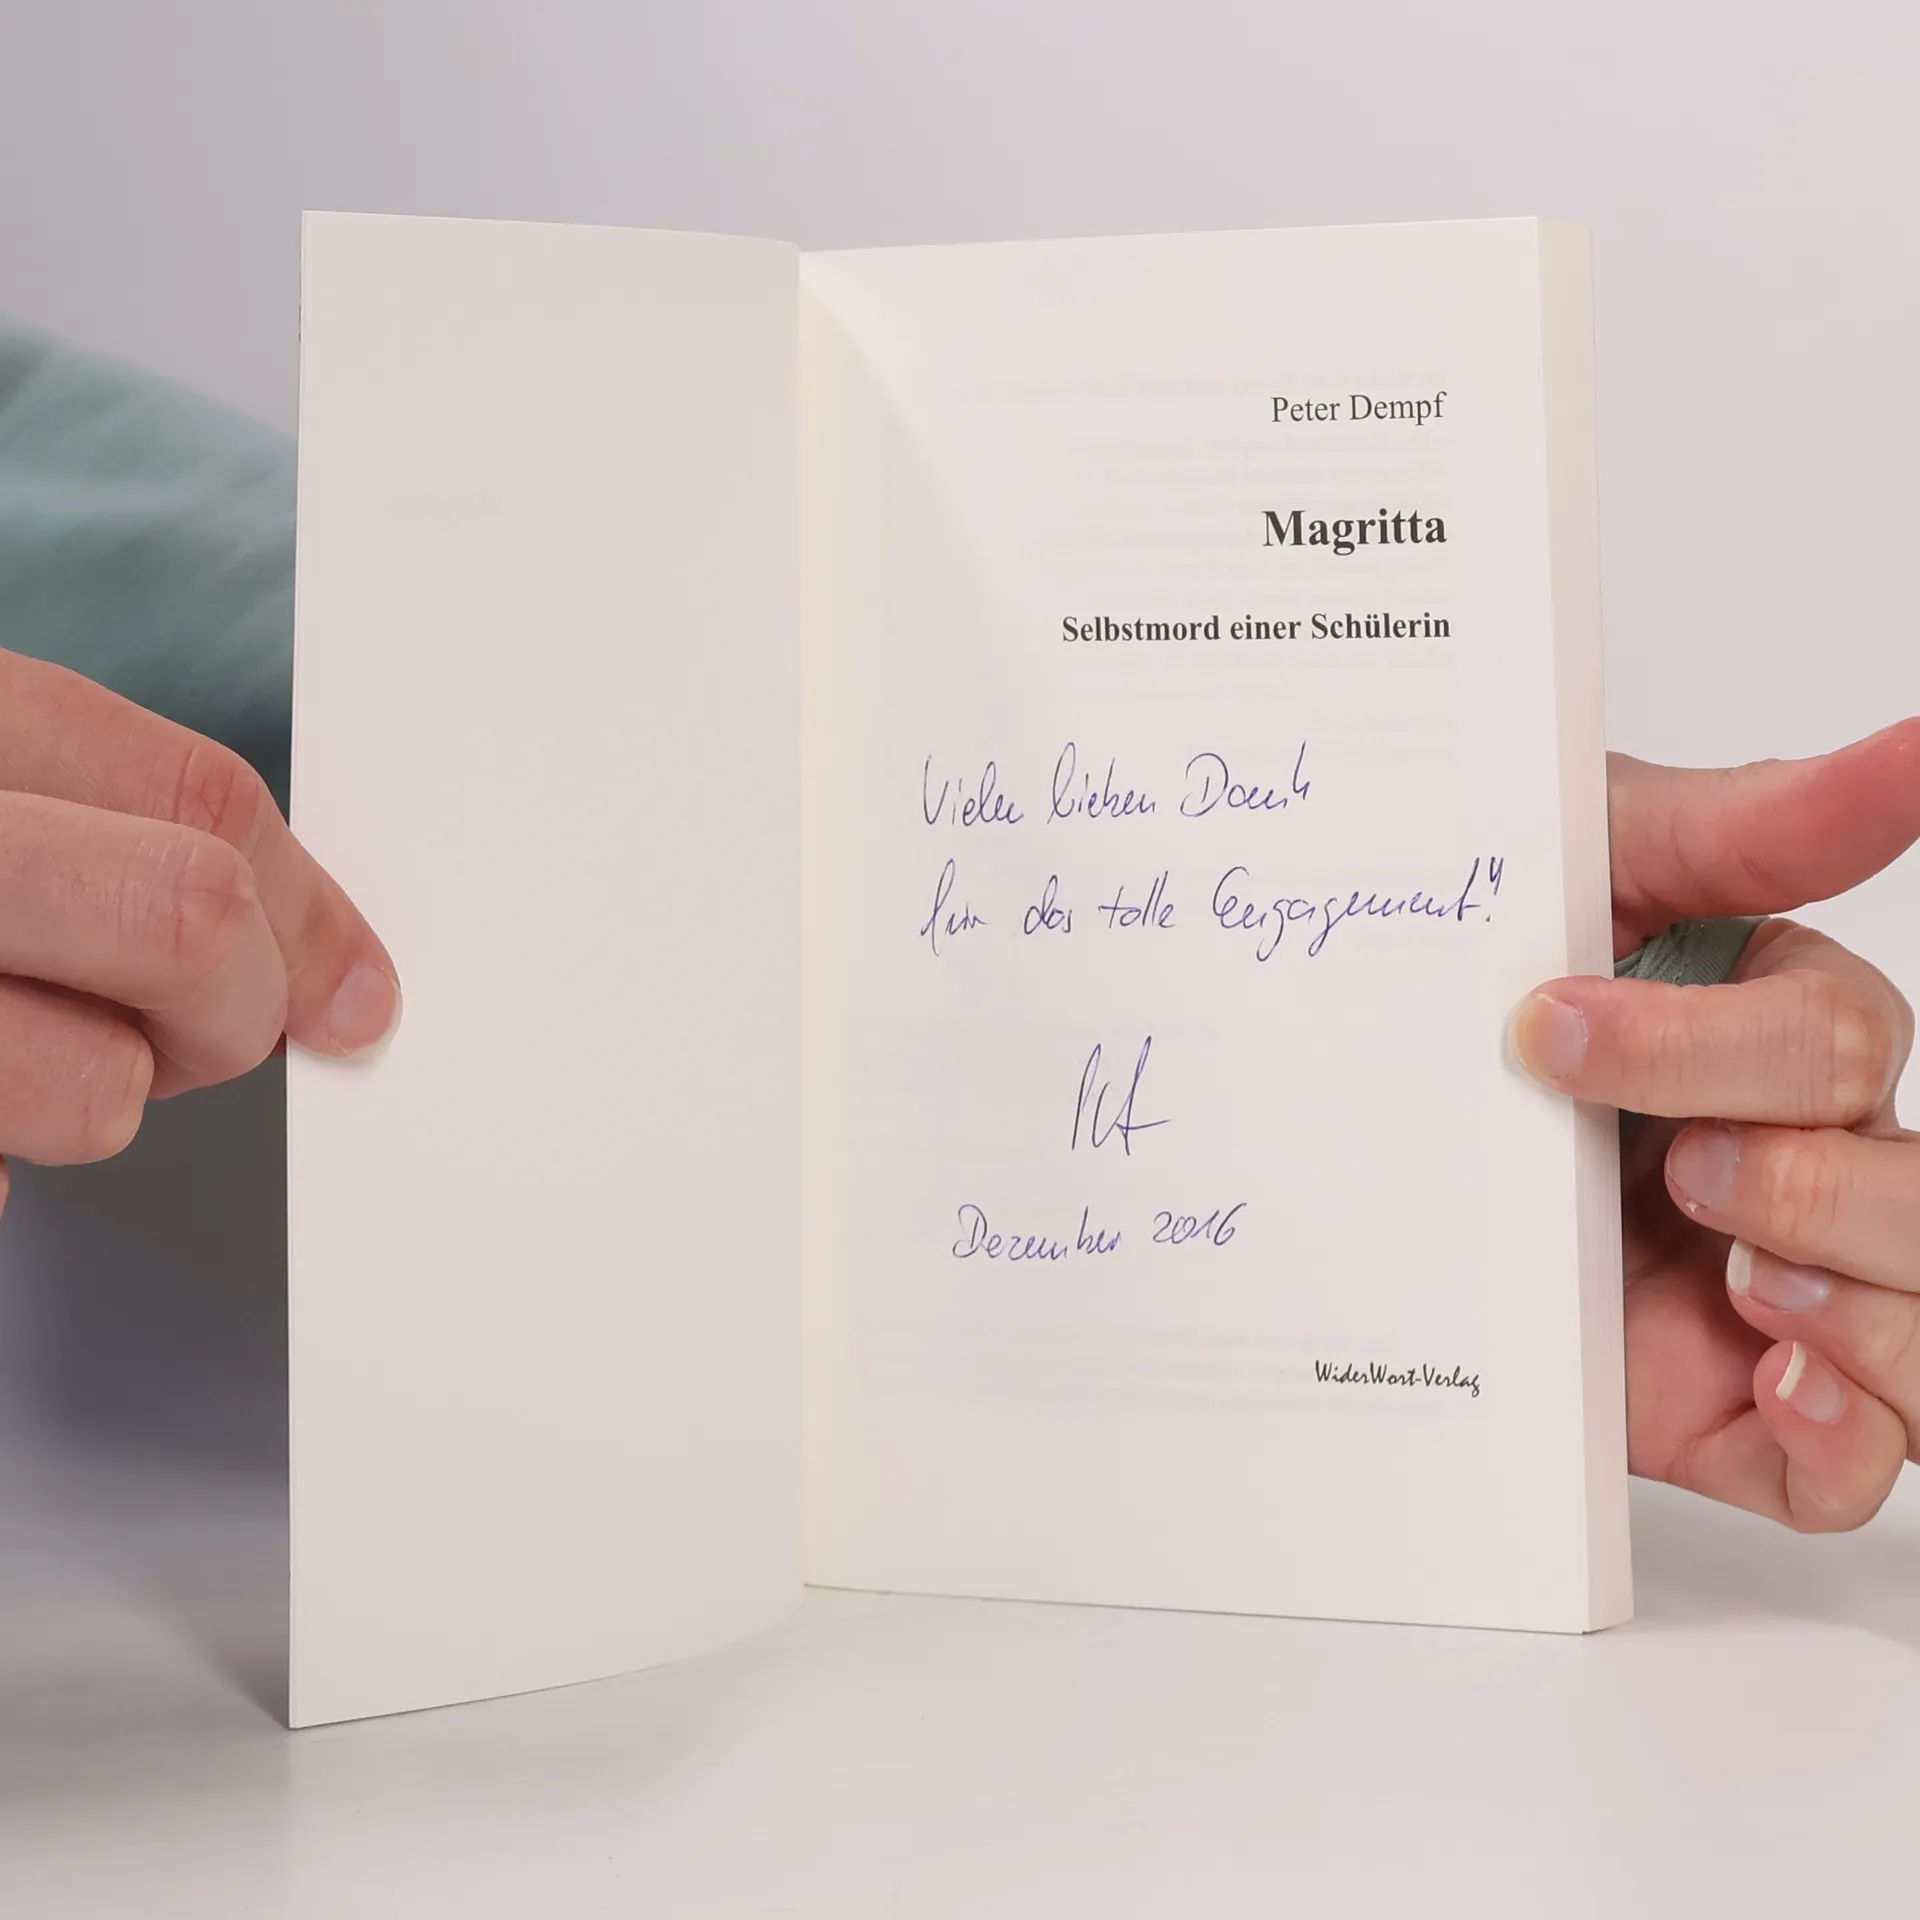 Peter Dempf
Magritta
Selbstmord einer Schülerin
Vielen lieben Dank
für das tolle Engagement!
Dezember 2016
WiderWort-Verlag